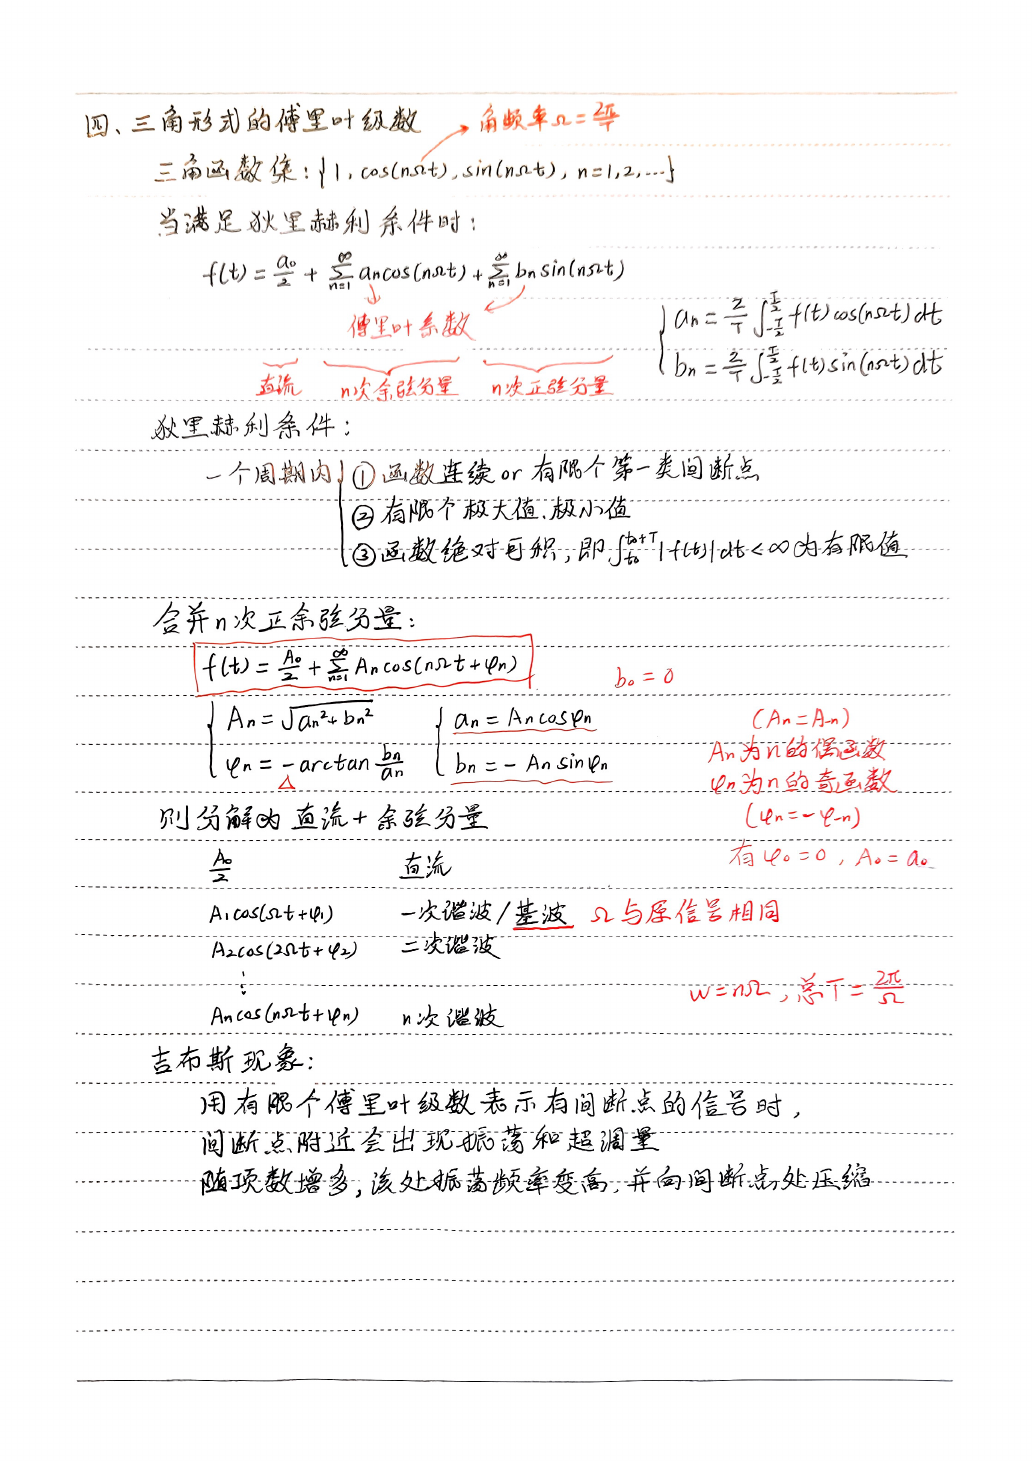 四、三角形式的傅里叶级数 → 角频率Ω=2π/T
三角函数集:{1, cos(nΩt), sin(nΩt), n=1,2,…}
当满足狄里赫利条件时:
f(t) = a₀/2 + ∑_{n=1}^{∞} aₙcos(nΩt) + ∑_{n=1}^{∞} bₙsin(nΩt)
傅里叶系数
aₙ = 2/T ∫_{-T/2}^{T/2} f(t)cos(nΩt)dt
bₙ = 2/T ∫_{-T/2}^{T/2} f(t)sin(nΩt)dt
直流 n次余弦分量 n次正弦分量
狄里赫利条件:
一个周期内 ①函数连续or有限个第一类间断点
②有限个极大值、极小值
③函数绝对可积,即∫_{t₀}^{t₀+T}|f(t)|dt<∞为有限值
合并n次正余弦分量:
f(t) = A₀/2 + ∑_{n=1}^{∞} Aₙcos(nΩt+φₙ)
b₀=0
Aₙ = √(aₙ²+bₙ²) aₙ = Aₙcosφₙ
φₙ = -arctan bₙ/aₙ bₙ = -Aₙsinφₙ
(Aₙ=A₋ₙ)
Aₙ为n的偶函数
φₙ为n的奇函数
(φₙ=-φ₋ₙ)
有φ₀=0, A₀=a₀
则分解为直流+余弦分量
A₀/2 直流
A₁cos(Ωt+φ₁) 一次谐波/基波 Ω与原信号相同
A₂cos(2Ωt+φ₂) 二次谐波
⋮
w=nΩ,总T=2π/Ω
Aₙcos(nΩt+φₙ) n次谐波
吉布斯现象:
用有限个傅里叶级数表示有间断点的信号时,
间断点附近会出现振荡和超调量
随项数增多,该处振荡频率变高,并向间断点处压缩